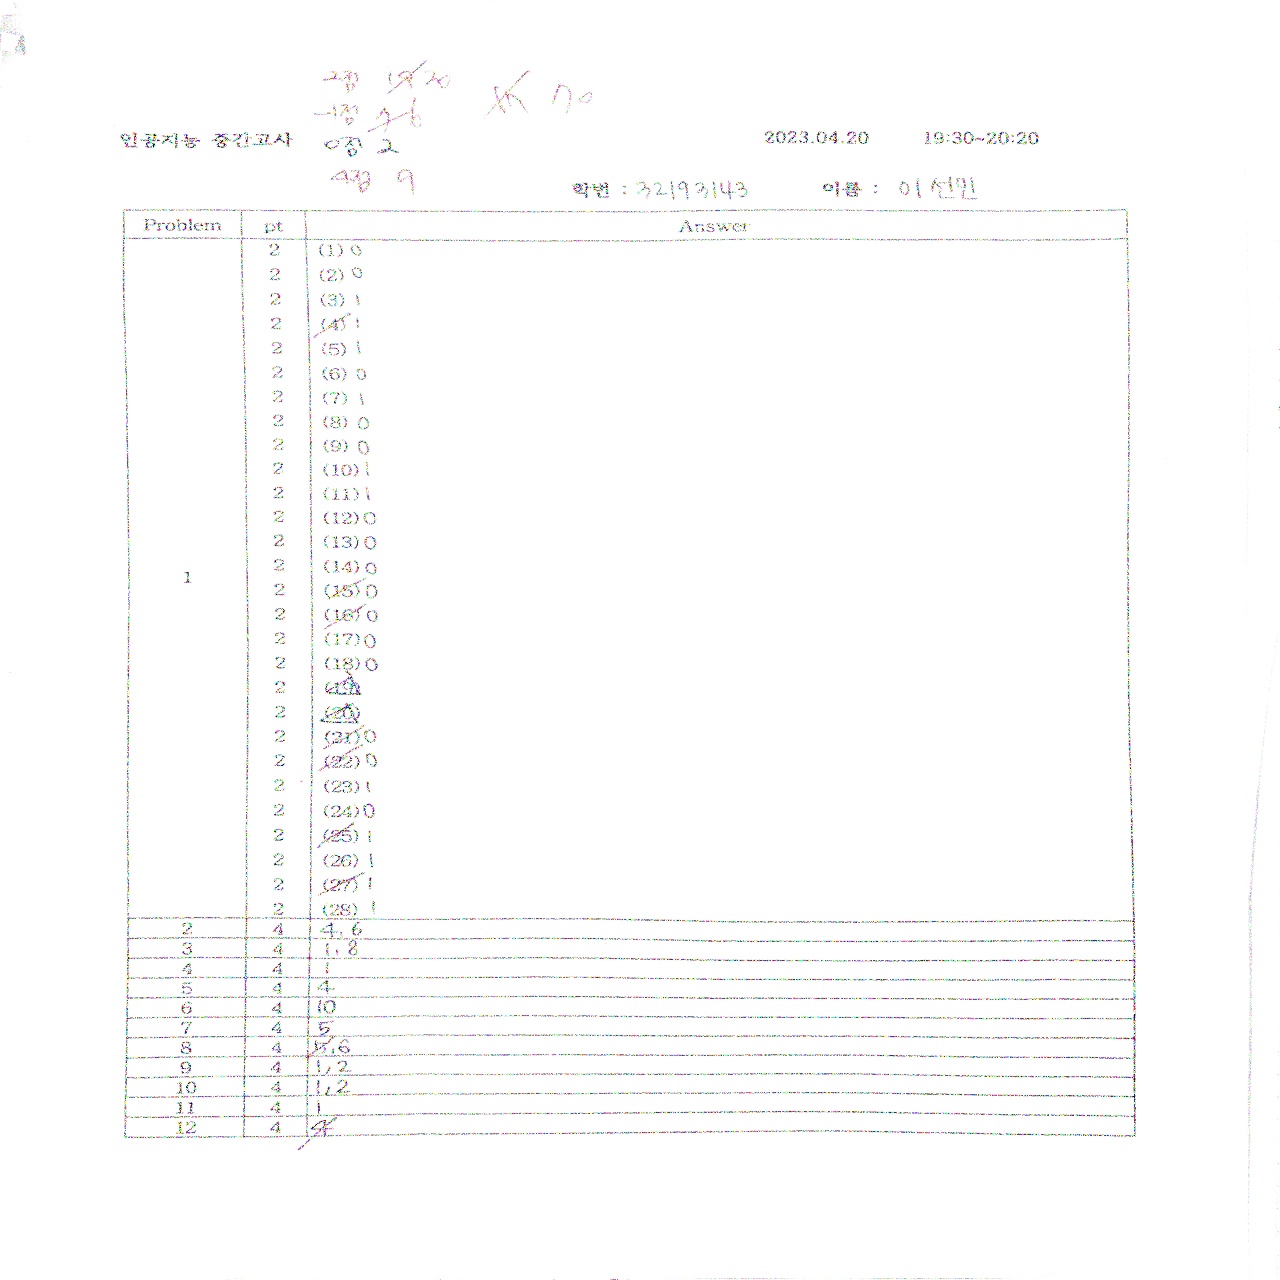 2점 19 20
-1점 7 6 70
인공지능 중간고사 0점 2 2023.04.20 19:30~20:20
4점 9
학번 : 32193143 이름 : 이선민
Problem pt Answer
2 (1) 0
2 (2) 0
2 (3) 1
2 (4) 1
2 (5) 1
2 (6) 0
2 (7) 1
2 (8) 0
2 (9) 0
2 (10) 1
2 (11) 1
2 (12) 0
2 (13) 0
2 (14) 0
1 2 (15) 0
2 (16) 0
2 (17) 0
2 (18) 0
2 (19)
2 (20)
2 (21) 0
2 (22) 0
2 (23) 1
2 (24) 0
2 (25) 1
2 (26) 1
2 (27) 1
2 (28) 1
2 4 4, 6
3 4 1, 8
4 4 1
5 4 4
6 4 10
7 4 5
8 4 5,6
9 4 1, 2
10 4 1, 2
11 4 1
12 4 4